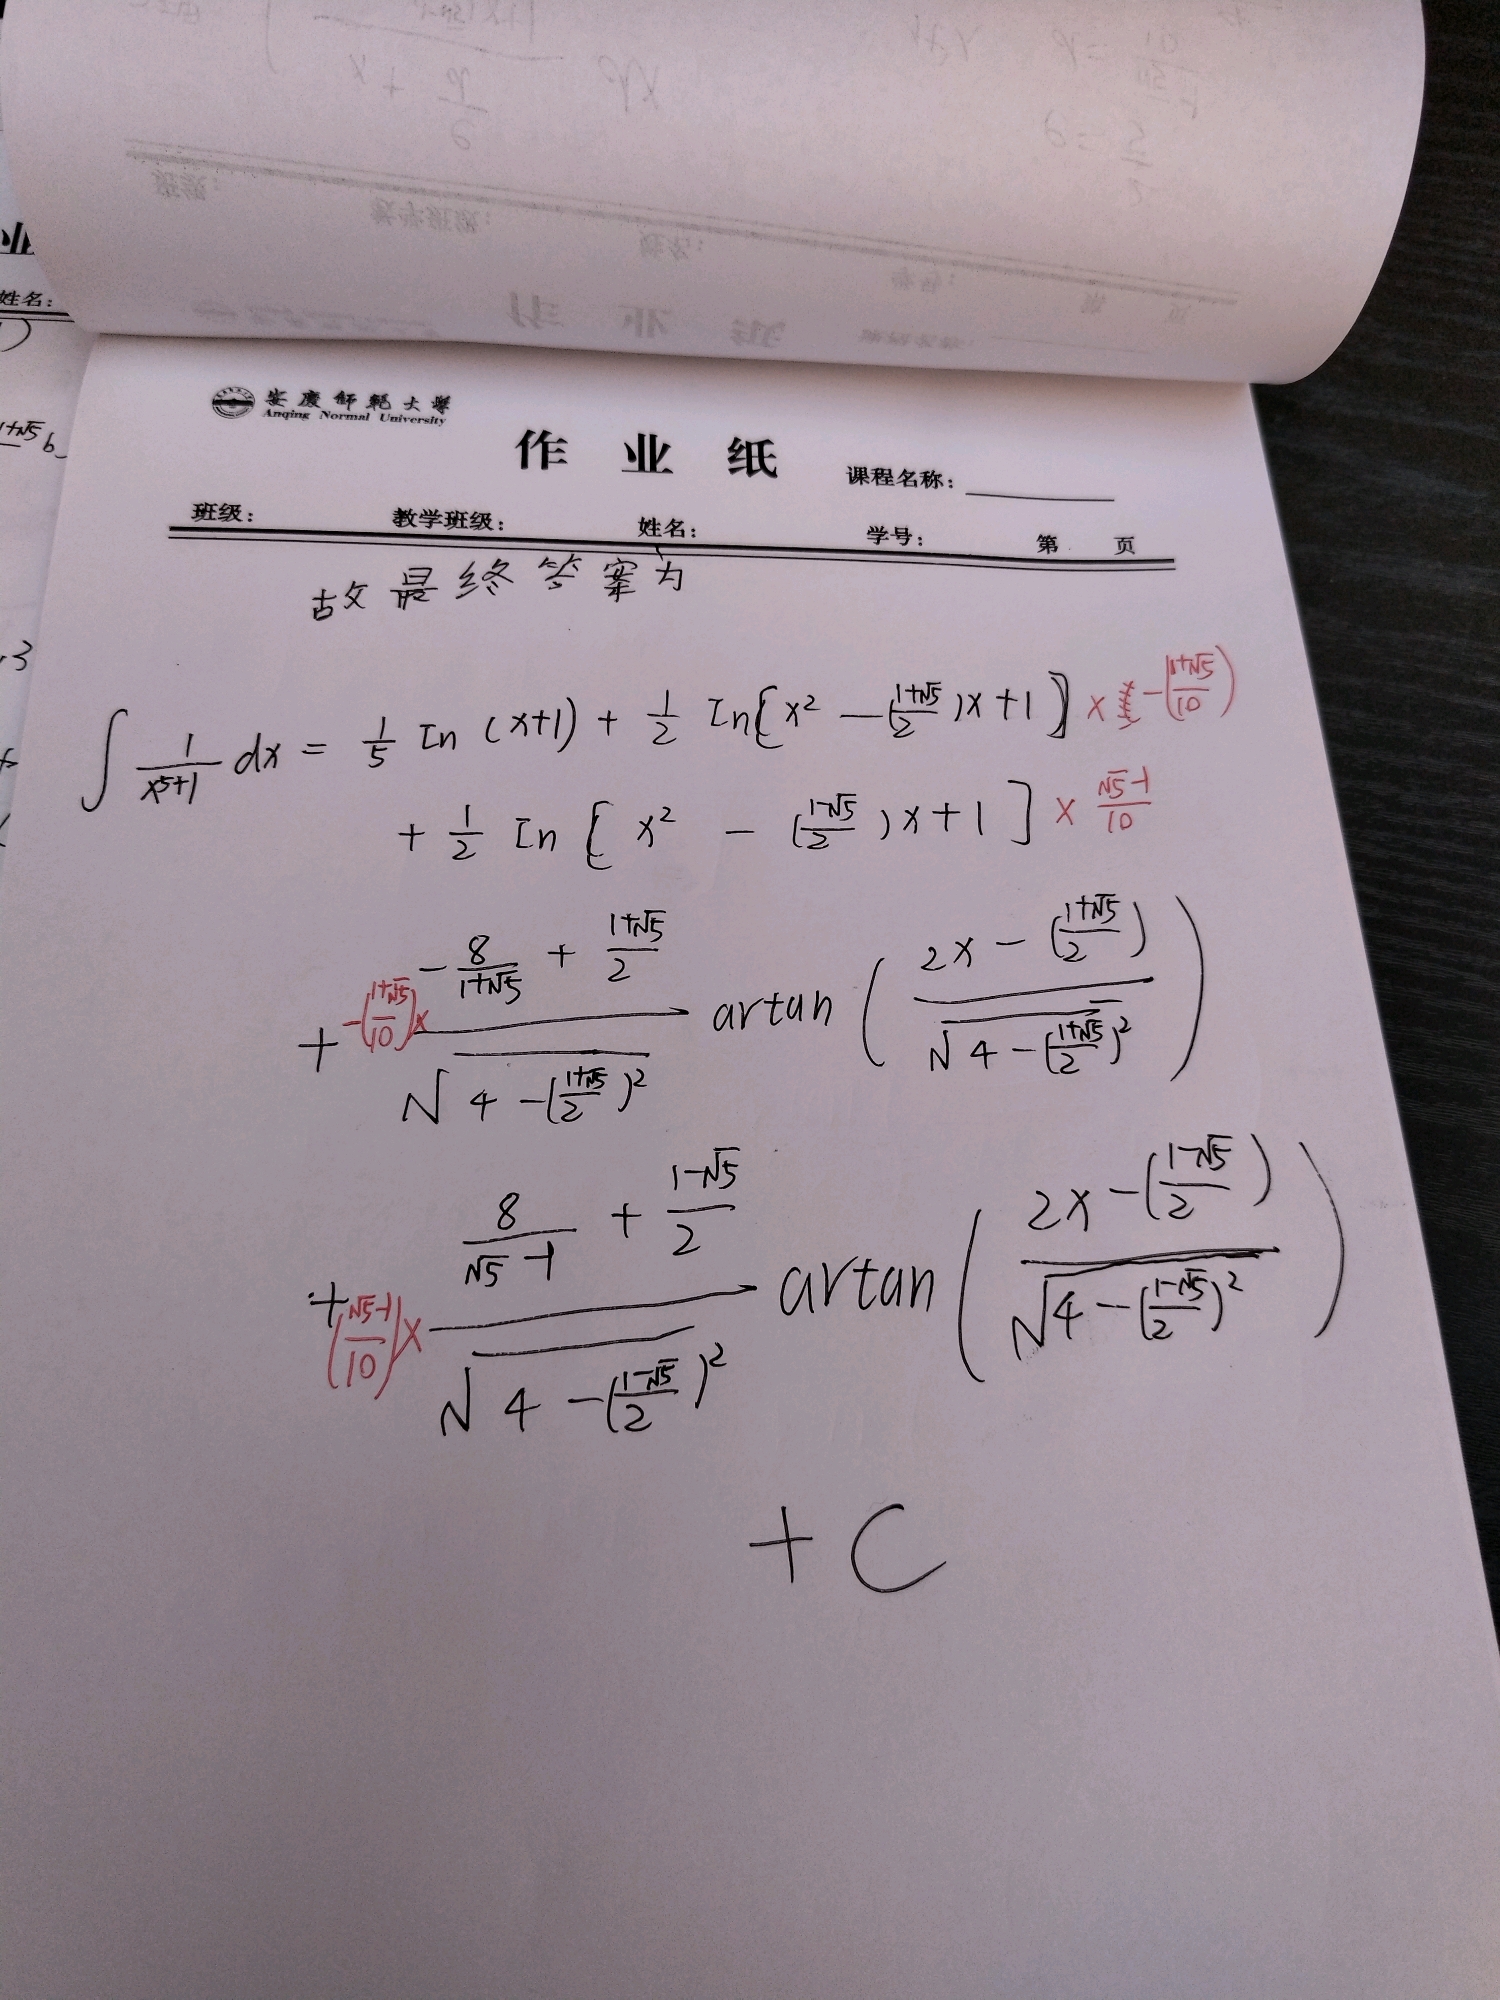 安庆师范大学
Anqing Normal University
作 业 纸
课程名称：
班级： 教学班级： 姓名： 学号： 第 页
故最终答案为
∫ 1/(x⁵+1) dx = 1/5 In (x+1) + 1/2 In[x² - ((1+√5)/2)x+1] × -((1+√5)/10)
+ 1/2 In [x² - ((1-√5)/2)x+1] × (√5-1)/10
+ -((1+√5)/10)× (-8/(1+√5) + (1+√5)/2)/√(4-((1+√5)/2)²) artan ((2x-((1+√5)/2))/√(4-((1+√5)/2)²))
+ ((√5-1)/10)× (8/(√5-1) + (1-√5)/2)/√(4-((1-√5)/2)²) artan ((2x-((1-√5)/2))/√(4-((1-√5)/2)²))
+ C
姓名：